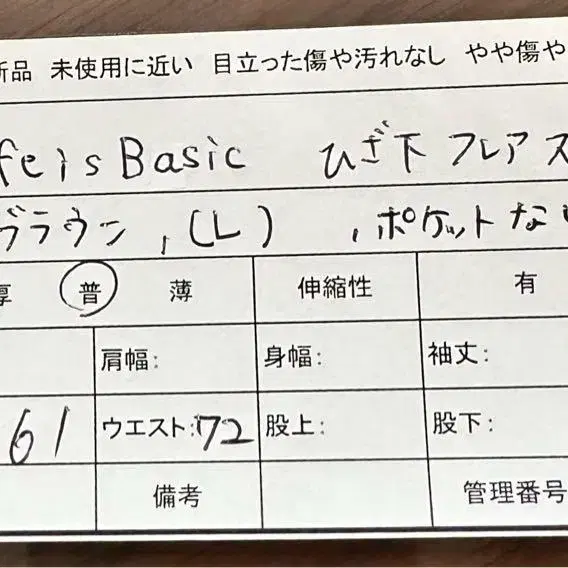 新品 未使用に近い 目立った傷や汚れなし やや傷や
feisBasic ひざ下フレアス
ブラウン,(L) ,ポケットな
厚 普 薄 伸縮性 有
肩幅: 身幅: 袖丈:
61 ウエスト:72 股上: 股下:
備考 管理番号